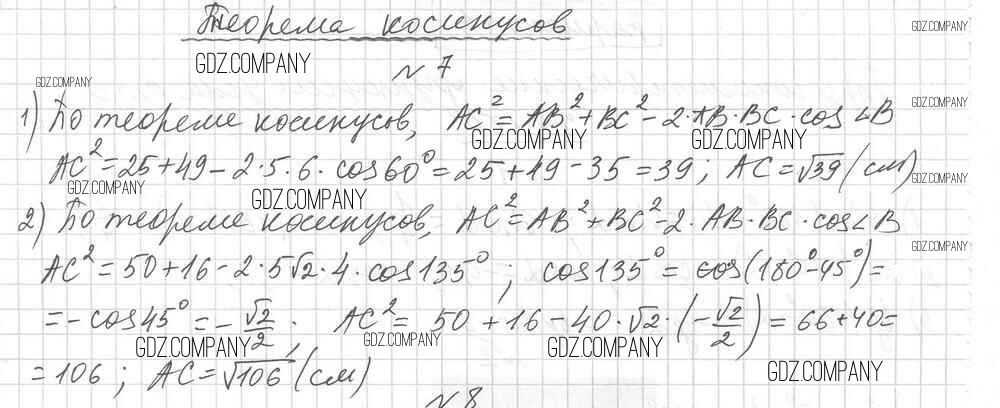 Теорема косинусов
GDZ.COMPANY
GDZ.COMPANY
№ 7
GDZ.COMPANY
1) По теореме косинусов, AC² = AB² + BC² - 2·AB·BC·cos∠B
GDZ.COMPANY
GDZ.COMPANY GDZ.COMPANY
AC² = 25 + 49 - 2·5·6·cos60° = 25 + 49 - 35 = 39; AC = √39 (см)
GDZ.COMPANY
GDZ.COMPANY GDZ.COMPANY
2) По теореме косинусов, AC² = AB² + BC² - 2·AB·BC·cos∠B
GDZ.COMPANY
AC² = 50 + 16 - 2·5√2·4·cos135°; cos135° = cos(180°-45°) =
= -cos45° = -√2/2. AC² = 50 + 16 - 40·√2·(-√2/2) = 66 + 40 =
GDZ.COMPANY GDZ.COMPANY GDZ.COMPANY GDZ.COMPANY
= 106; AC = √106 (см)
№ 8